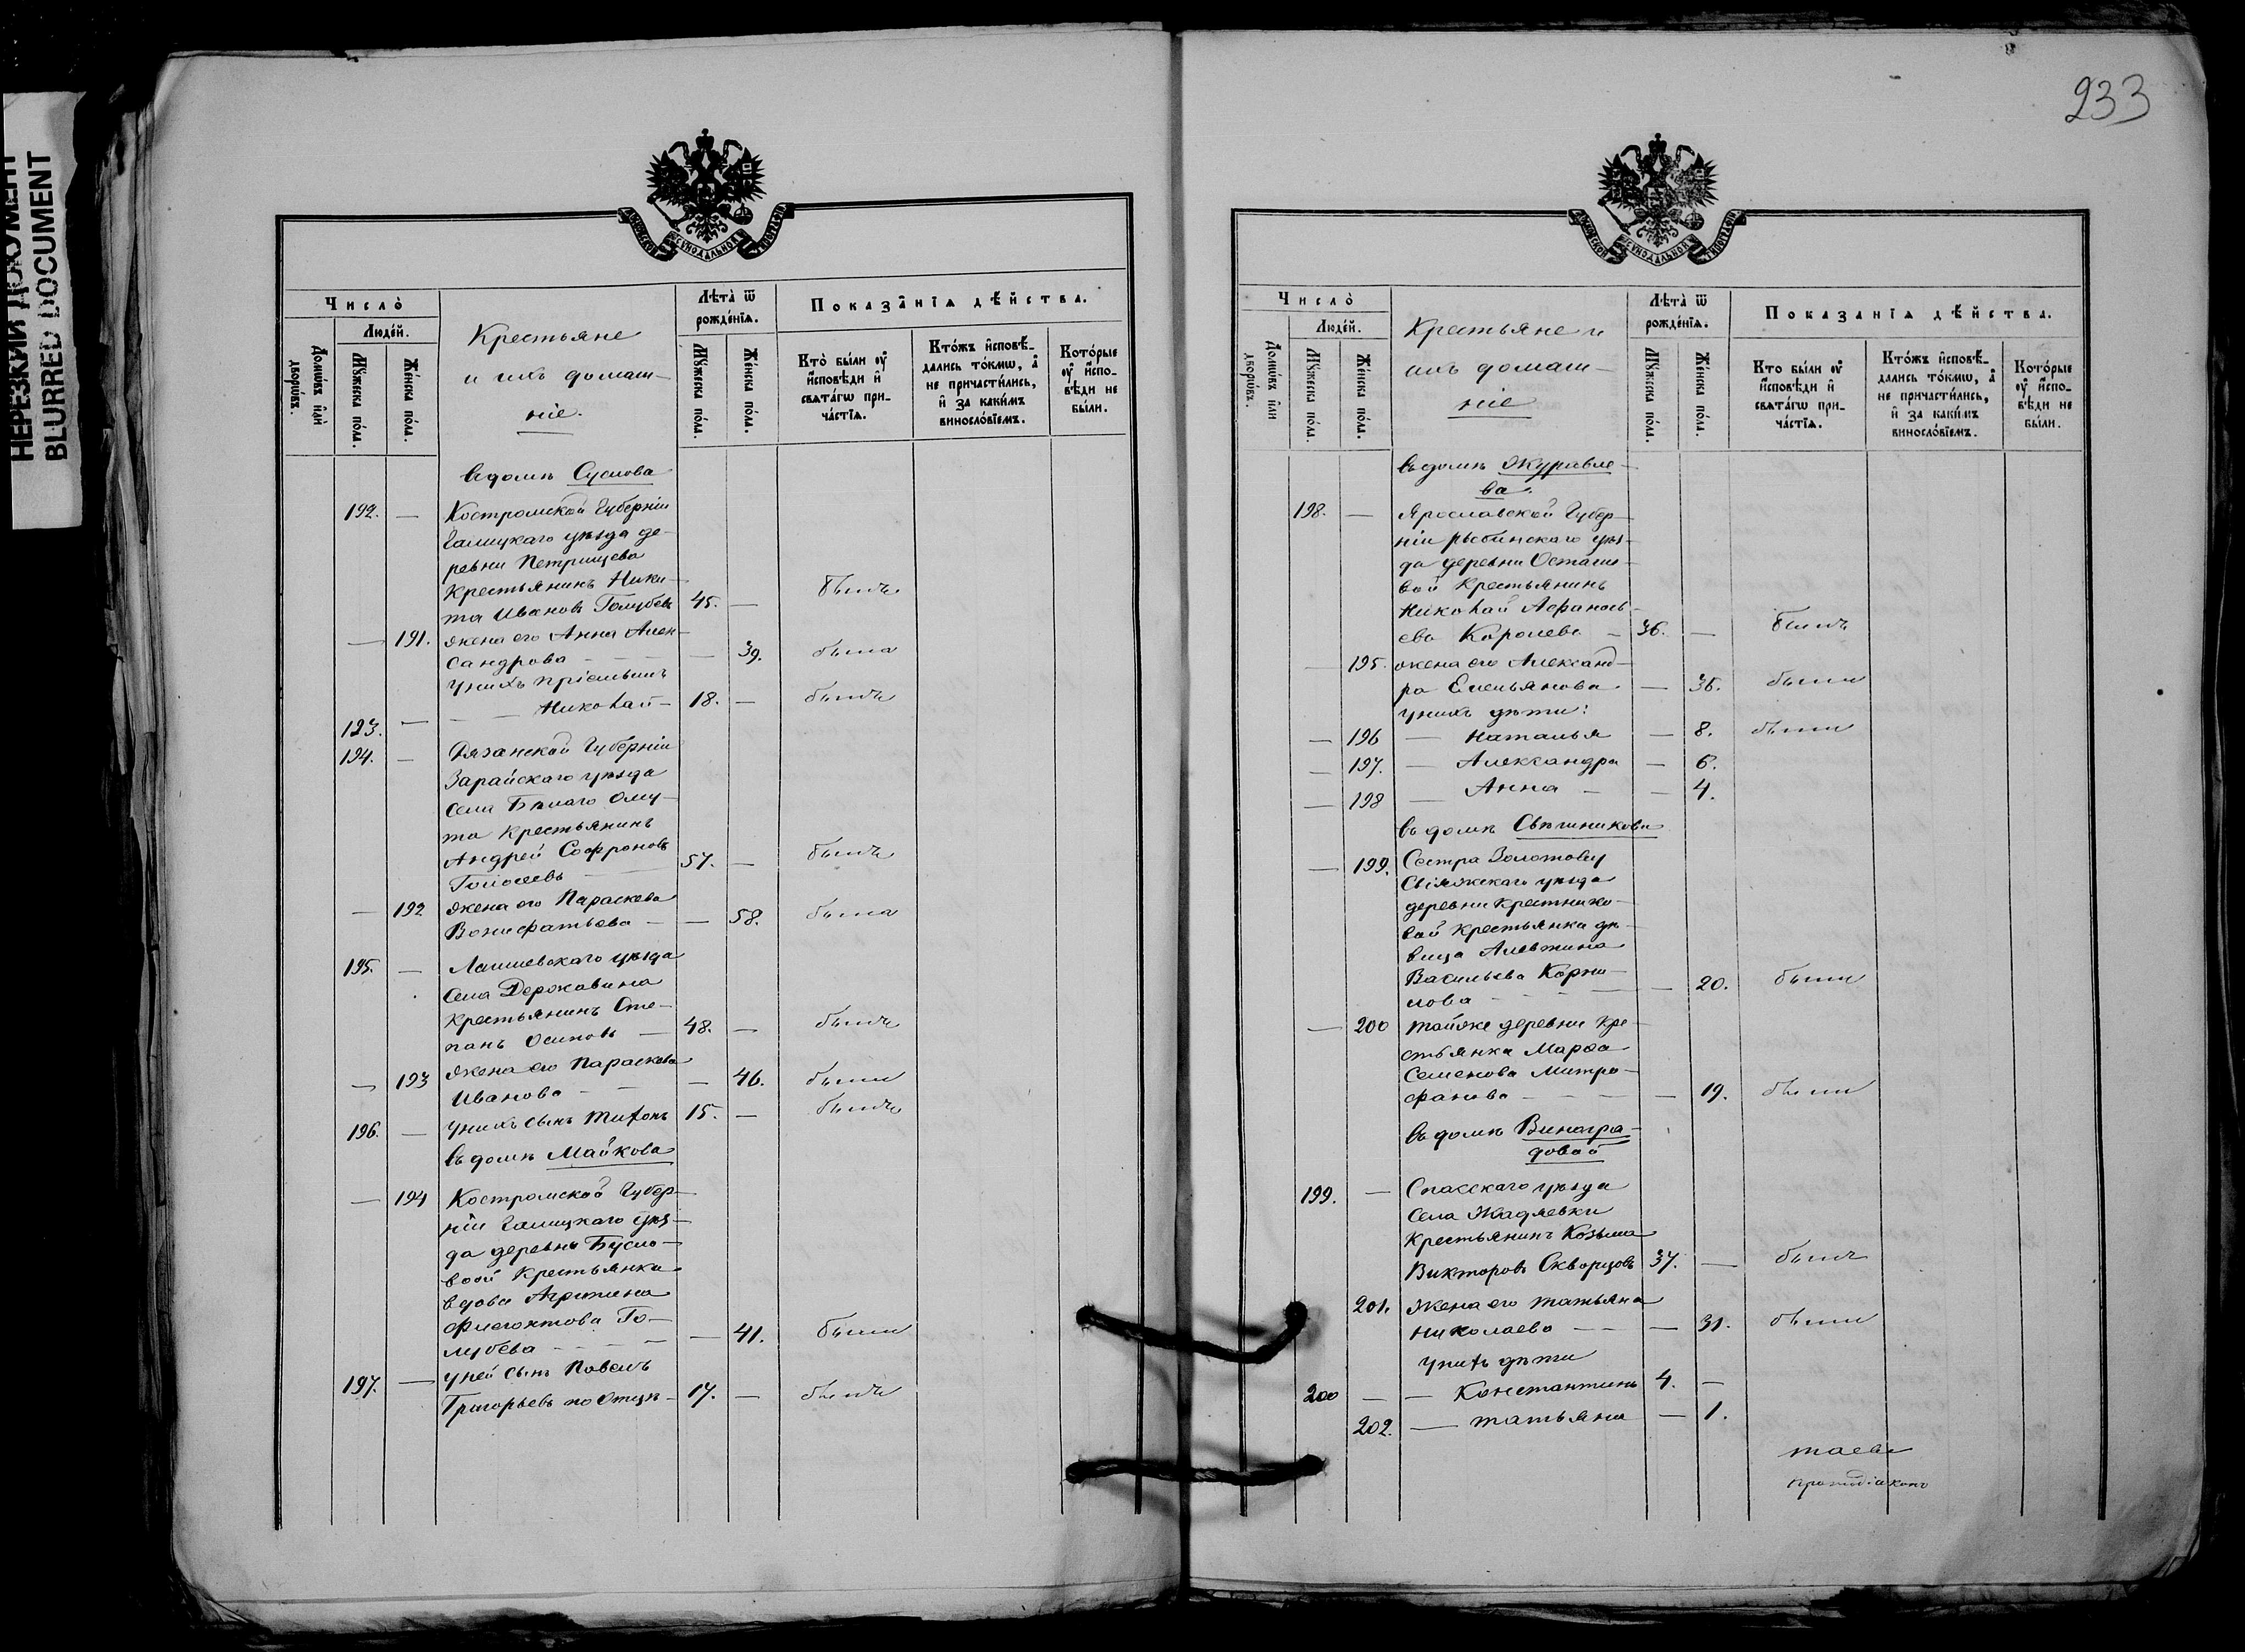 НЕРЕЗКИЙ ДОКУМЕНТ
BLURRED DOCUMENT
МОСКОВСКОЙ СѴНОДАЛЬНОЙ ТИПОГРАФІИ
Число̀
Людей.
Домѡвъ илѝ дворѡвъ.
Мꙋжеска пола.
Женска пола.
Крестьяне
и ихъ домаш-
ніе.
Лѣта̀ ѿ рожденїѧ.
Мꙋжеска пола.
Женска пола.
Показанїѧ дѣйства.
Кто̀ были оу҆
исповѣди и҆
свѧтагѡ при-
частїѧ.
Ктожъ исповѣ-
дались токмѡ, а҆
не причастились,
и҆ за какимъ
винословїемъ.
Которые
оу҆ испо-
вѣди не
были.
въ домѣ Суслова
192. — Костромской Губерніи
Галицкаго уѣзда де-
ревни Петрищева
Крестьянинъ Ники-
та Ивановъ Голубевъ 45. — былъ
— 191. жена его Анна Алек-
сандрова — — 39. была
у нихъ пріемышъ
123. — — Николай — 18. — былъ
194. — Рязанской Губерніи
Зарайскаго уѣзда
села Бѣлаго Ому-
та крестьянинъ
Андрей Софроновъ 57. — былъ
— 192 жена его Параскева
Вонифатьева — — 58. была
195. — Лаишевскаго уѣзда
села Державина
крестьянинъ Сте-
панъ Осиповъ — 48. — былъ
— 193 жена его Параскева
Иванова — — 46. была
196. — у нихъ сынъ Тихонъ 15. — былъ
въ домѣ Майкова
— 194 Костромской Губер-
ніи Галицкаго уѣз-
да деревни Бусло-
вой Крестьянка
вдова Агрипина
Флегонтова Го-
лубева — — 41. была
197. — у ней сынъ Павелъ
Григорьевъ по отцѣ — 17. — былъ
233
МОСКОВСКОЙ СѴНОДАЛЬНОЙ ТИПОГРАФІИ
Число̀
Людей.
Домѡвъ илѝ дворѡвъ.
Мꙋжеска пола.
Женска пола.
Крестьяне и
ихъ домаш-
ніе
Лѣта̀ ѿ рожденїѧ.
Мꙋжеска пола.
Женска пола.
Показанїѧ дѣйства.
Кто были оу҆
исповѣди и҆
свѧтагѡ при-
частїѧ.
Ктожъ исповѣ-
дались токмѡ, а҆
не причастились,
и҆ за какимъ
винословїемъ.
Которые
оу҆ испо-
вѣди не
были.
въ домѣ Журавле-
ва.
198. — Ярославской Губер-
ніи рыбинскаго уѣз-
да деревни Осташ-
вой крестьянинъ
Николай Афанась-
евъ Королевъ — 36. — былъ
— 195. жена его Александ-
ра Емельянова — 36. была
у нихъ дѣти:
— 196 — Наталья — 8. была
— 197. — Александра — 6.
— 198 — Анна — — 4.
въ домѣ Свѣшникова
— 199. Сестра Золотову
Свіяжскаго уѣзда
деревни Крестнико-
вой крестьянка дѣ-
вица Алевтина
Васильева Корни-
лова — — 20. была
— 200 той же деревни кре-
стьянка Марѳа
Семенова Митро-
фанова — — 19. была
въ домѣ Виногра-
довой
199. — Спасскаго уѣзда
села Жадяевки
крестьянинъ Козьма
Викторовъ Скворцовъ 37. — былъ
201. жена его татьяна
Николаева — — 31. была
у нихъ дѣти
200 — — Константинъ 4. —
202. — татьяна — 1.
протодіаконъ